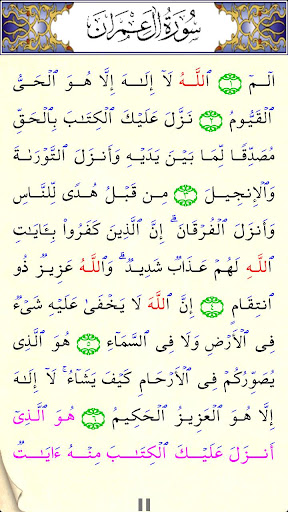 سُورَةُ آلِ عِمْرَان
الٓمٓ ١ ٱللَّهُ لَآ إِلَٰهَ إِلَّا هُوَ ٱلْحَىُّ
ٱلْقَيُّومُ ٢ نَزَّلَ عَلَيْكَ ٱلْكِتَٰبَ بِٱلْحَقِّ
مُصَدِّقًا لِّمَا بَيْنَ يَدَيْهِ وَأَنزَلَ ٱلتَّوْرَىٰةَ
وَٱلْإِنجِيلَ ٣ مِن قَبْلُ هُدًى لِّلنَّاسِ
وَأَنزَلَ ٱلْفُرْقَانَ ۗ إِنَّ ٱلَّذِينَ كَفَرُوا۟ بِـَٔايَٰتِ
ٱللَّهِ لَهُمْ عَذَابٌ شَدِيدٌ ۗ وَٱللَّهُ عَزِيزٌ ذُو
ٱنتِقَامٍ ٤ إِنَّ ٱللَّهَ لَا يَخْفَىٰ عَلَيْهِ شَىْءٌ
فِى ٱلْأَرْضِ وَلَا فِى ٱلسَّمَآءِ ٥ هُوَ ٱلَّذِى
يُصَوِّرُكُمْ فِى ٱلْأَرْحَامِ كَيْفَ يَشَآءُ ۚ لَآ إِلَٰهَ
إِلَّا هُوَ ٱلْعَزِيزُ ٱلْحَكِيمُ ٦ هُوَ ٱلَّذِىٓ
أَنزَلَ عَلَيْكَ ٱلْكِتَٰبَ مِنْهُ ءَايَٰتٌ